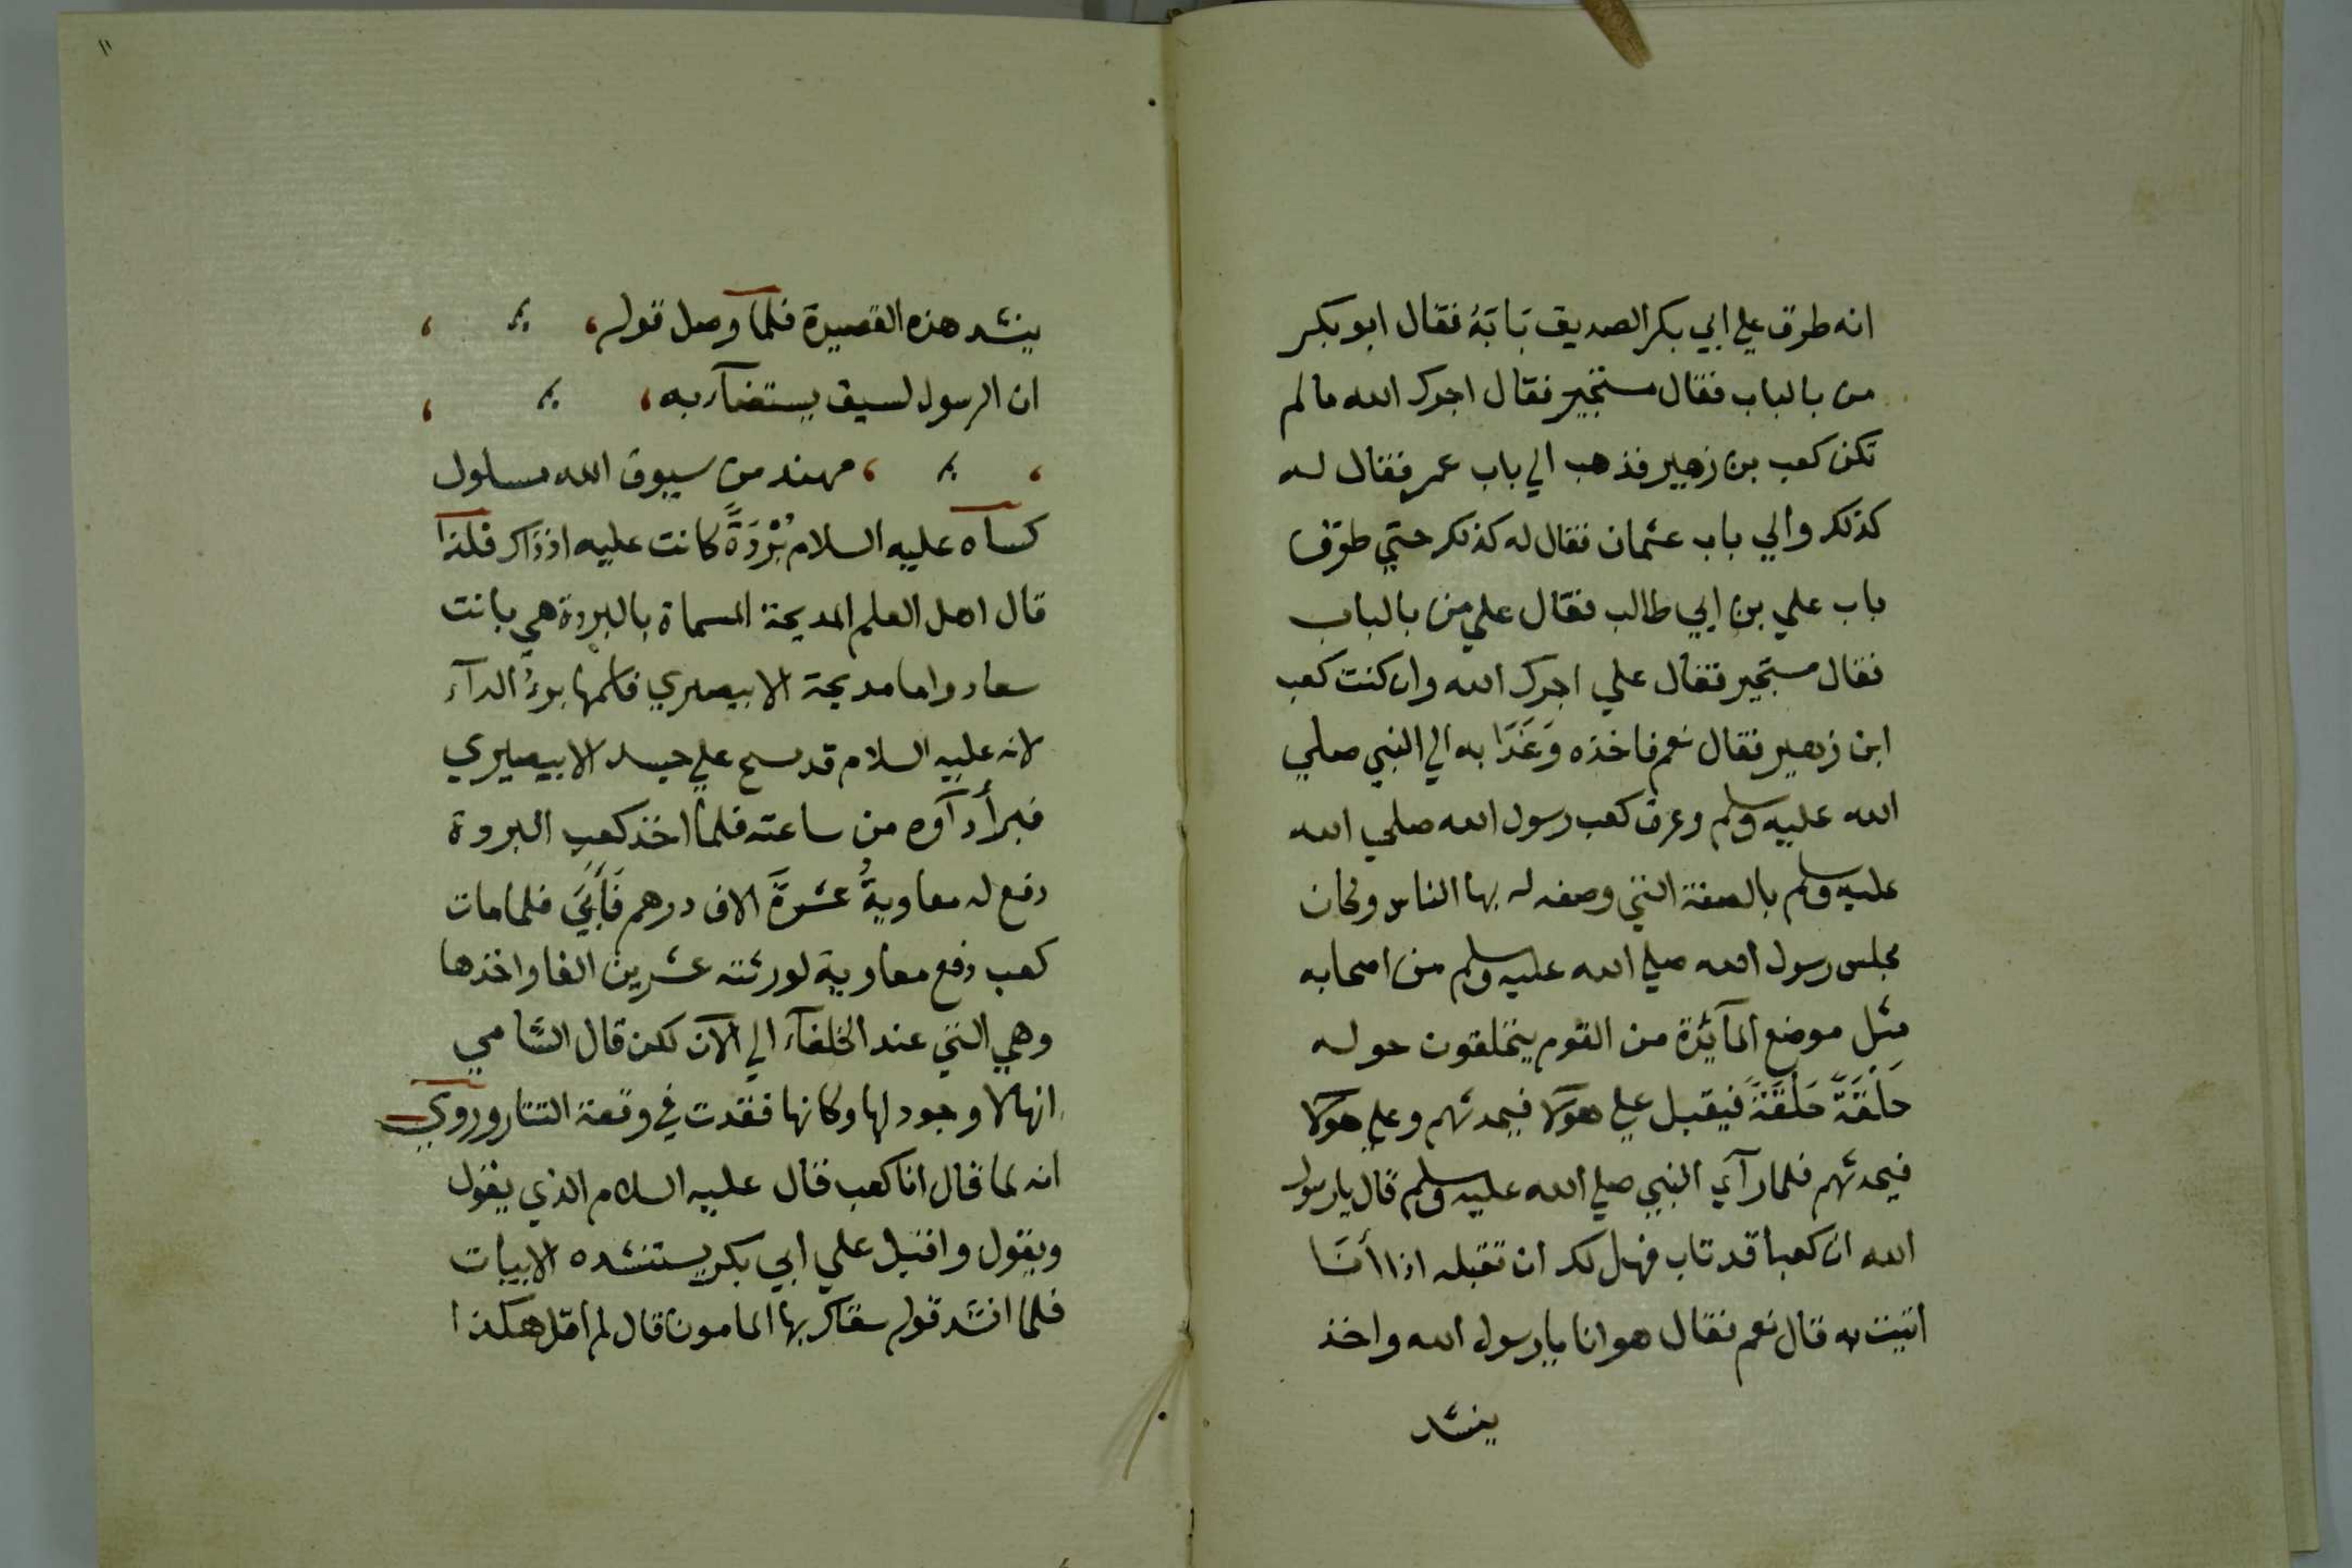 انه طرق علي ابي بكر الصديق بَابَهُ فقال ابو بكر
من بالباب فقال مستجير فقال اجرك الله ما لم
تكن كعب بن زهير فذهب الي باب عمر فقال له
كذلك والي باب عثمان فقال له كذلك حتي طرق
باب علي بن ابي طالب فقال علي من بالباب
فقال مستجير فقال علي اجرك الله وان كنت كعب
ابن زهير فقال نعم فاخذه وَغَدَا به الي النبي صلي
الله عليه وسلم وعرف كعب رسول الله صلي الله
عليه وسلم بالصفة التي وصفه له بها الناس وكان
مجلس رسول الله صلي الله عليه وسلم من اصحابه
مثل موضع المآئدة من القوم يتحلقون حوله
حَلْقَةً حَلْقَةً فيقبل علي هؤلا فيحدثهم وعلي هؤلا
فيحدثهم فلما رآي النبي صلي الله عليه وسلم قال يا رسول
الله ان كعبا قد تاب فهل لك ان تقبله اذا أنا
اتيت به قال نعم فقال هو انا يا رسول الله واخذ
ينشد
١١
ينشد هذه القصيدة فلما وصل قوله
ان الرسول لسيف يستضآء به
مهند من سيوف الله مسلول
كساه عليه السلام بُرْدَةً كانت عليه اذ ذاك فلذا
قال اهل العلم المديحة المسماة بالبردة هي بانت
سعاد واما مديحة الابيصيري فاسمها برءُ الدآء
لانه عليه السلام قد مسح علي جسد الابيصيري
فبرأ دآوه من ساعته فلما اخذ كعب البردة
دفع له معاويةُ عشرةَ الاف درهم فَأَبَيَ فلما مات
كعب دفع معاوية لورثته عشرين الفا واخذها
وهي التي عند الخلفآء الي الآن لكن قال الشامي
انها لا وجود لها وكانها فقدت في وقعة التتار وروي
انه لما قال انا كعب قال عليه السلام الذي يقول
ويقول واقبل علي ابي بكر يستنشده الابيات
فلما انشد قوله سقاك بها المامون قال لم اقل هكذا